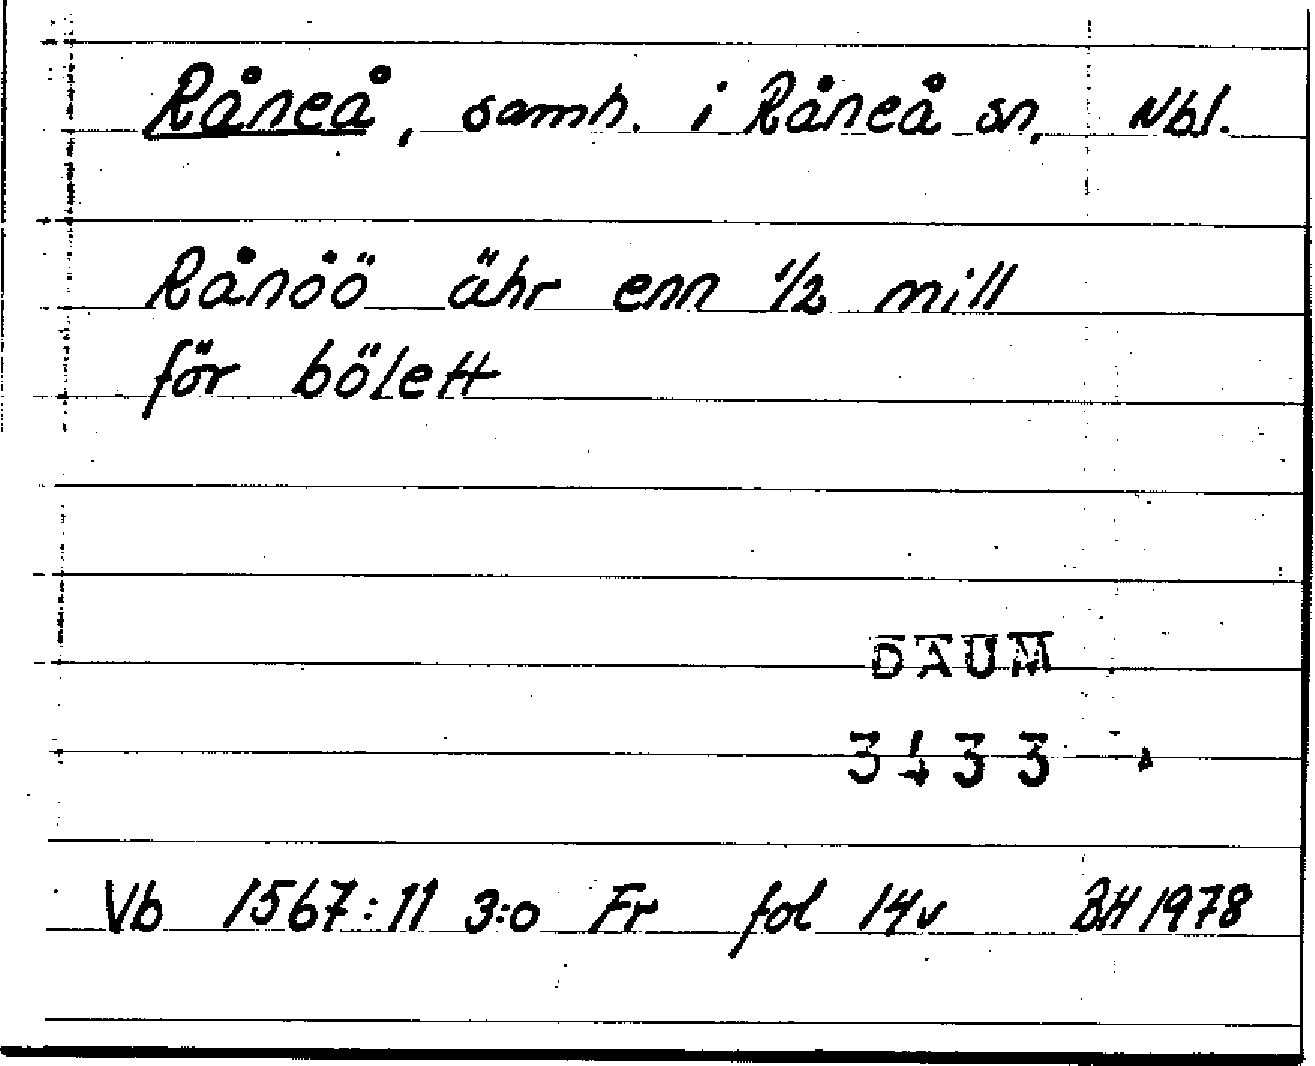 Råneå, samh. i Råneå sn, Nbl.
Rånöö ähr enn 1/2 mill
för bölett
DAUM
3133
Vb 1567:11 3:o Fr fol 14v BH 1978